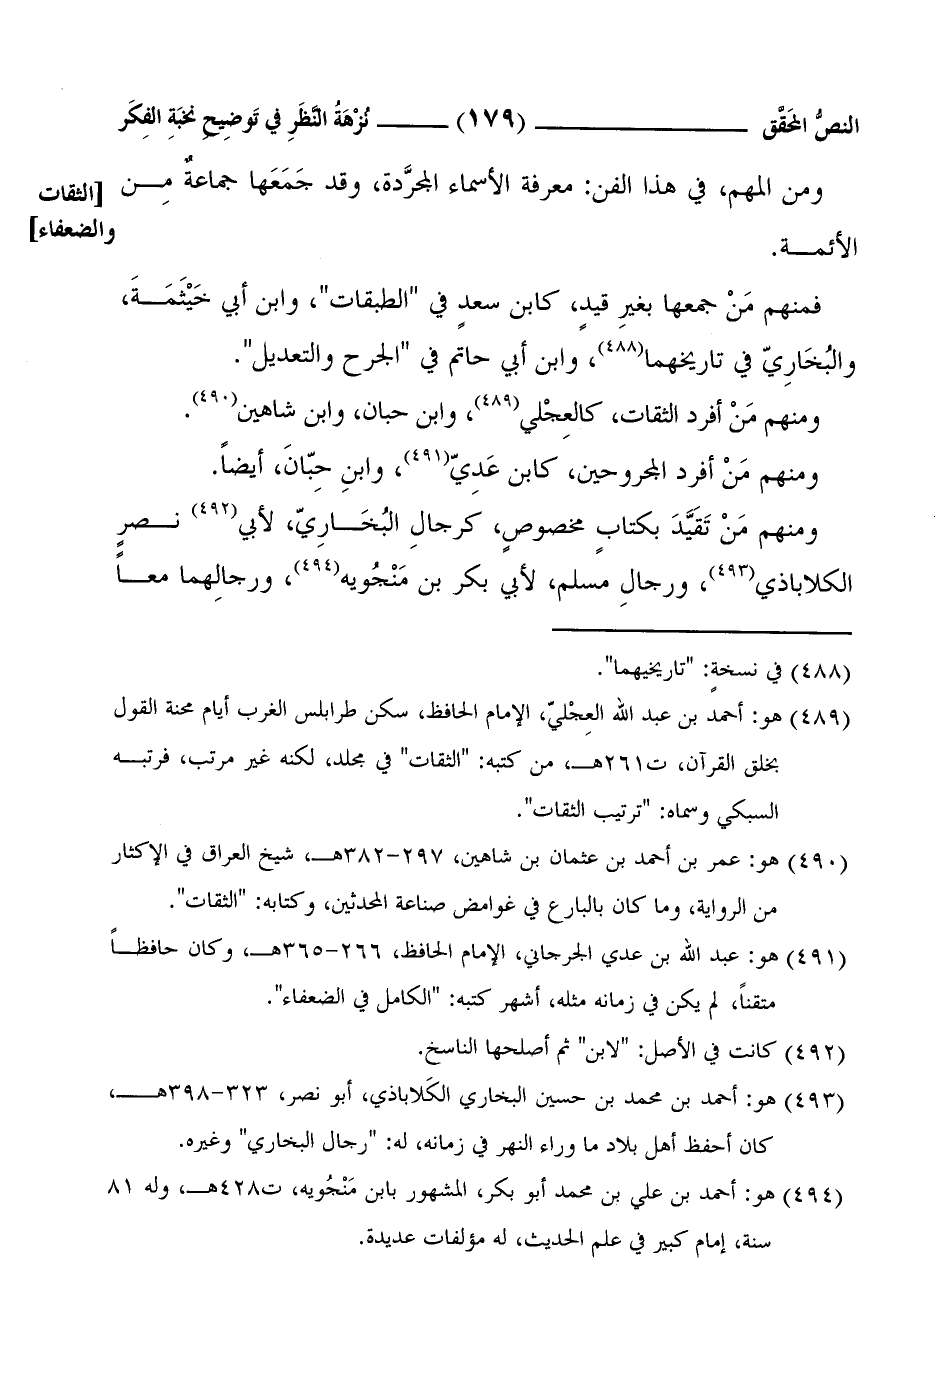 النصُّ المحَقَّق ـــــــــــ (١٧٩) ـــــــــــ نُزْهَةُ النَّظَرِ في تَوضِيحِ نخبَة الفِكَر
ومن المهم، في هذا الفن: معرفة الأسماء المجرَّدة، وقد جَمَعَها جماعةٌ مِــن
[الثقات
والضعفاء]
الأئمــــة.
فمنهم مَنْ جمعها بغيرِ قيدٍ، كابن سعدٍ في "الطبقات"، وابن أبي خَيْثَمَــةَ،
والبُخَارِيّ في تاريخهما(٤٨٨)، وابن أبي حاتم في "الجرح والتعديل".
ومنهم مَنْ أفرد الثقات، كالعِجْلي(٤٨٩)، وابن حبان، وابن شاهين(٤٩٠).
ومنهم مَنْ أفرد المجروحين، كابن عَدِيّ(٤٩١)، وابنِ حِبّانَ، أيضاً.
ومنهم مَنْ تَقَيَّدَ بكتابٍ مخصوصٍ، كرجالِ البُخَــارِيّ، لأبي(٤٩٢) نــصرٍ
الكلاباذي(٤٩٣)، ورجالِ مسلم، لأبي بكر بن مَنْجُويه(٤٩٤)، ورجالِهما معــاً
(٤٨٨) في نسخةٍ: "تاريخيهما".
(٤٨٩) هو: أحمد بن عبد الله العِجْليّ، الإمام الحافظ، سكن طرابلس الغرب أيام محنة القول
بخلق القرآن، ت٢٦١هــ، من كتبه: "الثقات" في مجلد، لكنه غير مرتب، فرتبــه
السبكي وسماه: "ترتيب الثقات".
(٤٩٠) هو: عمر بن أحمد بن عثمان بن شاهين، ٢٩٧-٣٨٢هــ، شيخ العراق في الإكثار
من الرواية، وما كان بالبارع في غوامض صناعة المحدثين، وكتابه: "الثقات".
(٤٩١) هو: عبد الله بن عدي الجرجاني، الإمام الحافظ، ٢٦٦-٣٦٥هــ، وكان حافظــاً
متقناً، لم يكن في زمانه مثله، أشهر كتبه: "الكامل في الضعفاء".
(٤٩٢) كانت في الأصل: "لابن" ثم أصلحها الناسخ.
(٤٩٣) هو: أحمد بن محمد بن حسين البخاري الكَلاباذي، أبو نصر، ٣٢٣-٣٩٨هــ،
كان أحفظ أهل بلاد ما وراء النهر في زمانه، له: "رجال البخاري" وغيره.
(٤٩٤) هو: أحمد بن علي بن محمد أبو بكر، المشهور بابن مَنْجُويه، ت٤٢٨هــ، وله ٨١
سنة، إمام كبير في علم الحديث، له مؤلفات عديدة.